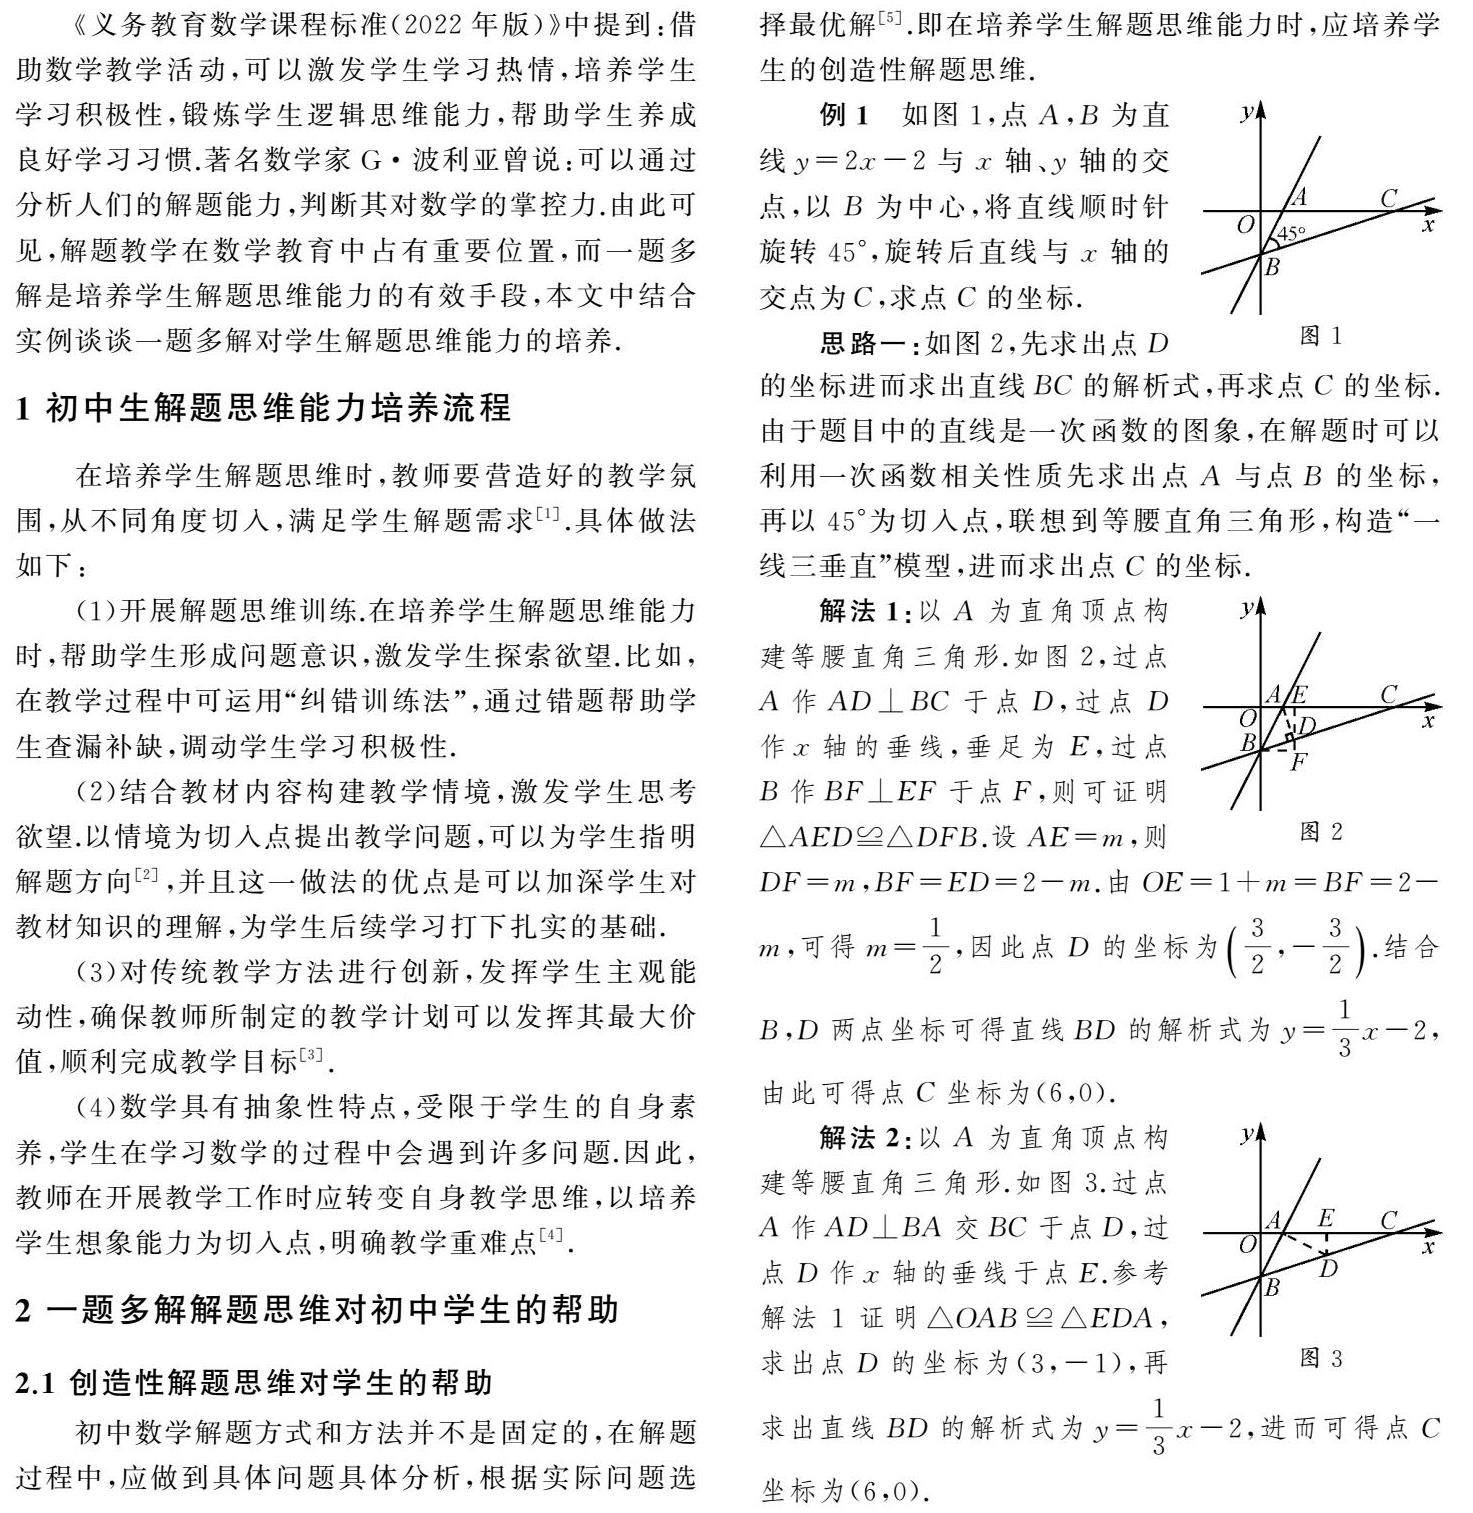 《义务教育数学课程标准(2022年版)》中提到:借
助数学教学活动,可以激发学生学习热情,培养学生
学习积极性,锻炼学生逻辑思维能力,帮助学生养成
良好学习习惯.著名数学家G·波利亚曾说:可以通过
分析人们的解题能力,判断其对数学的掌控力.由此可
见,解题教学在数学教育中占有重要位置,而一题多
解是培养学生解题思维能力的有效手段,本文中结合
实例谈谈一题多解对学生解题思维能力的培养.
1 初中生解题思维能力培养流程
在培养学生解题思维时,教师要营造好的教学氛
围,从不同角度切入,满足学生解题需求[1].具体做法
如下:
(1)开展解题思维训练.在培养学生解题思维能力
时,帮助学生形成问题意识,激发学生探索欲望.比如,
在教学过程中可运用“纠错训练法”,通过错题帮助学
生查漏补缺,调动学生学习积极性.
(2)结合教材内容构建教学情境,激发学生思考
欲望.以情境为切入点提出教学问题,可以为学生指明
解题方向[2],并且这一做法的优点是可以加深学生对
教材知识的理解,为学生后续学习打下扎实的基础.
(3)对传统教学方法进行创新,发挥学生主观能
动性,确保教师所制定的教学计划可以发挥其最大价
值,顺利完成教学目标[3].
(4)数学具有抽象性特点,受限于学生的自身素
养,学生在学习数学的过程中会遇到许多问题.因此,
教师在开展教学工作时应转变自身教学思维,以培养
学生想象能力为切入点,明确教学重难点[4].
2 一题多解解题思维对初中学生的帮助
2.1 创造性解题思维对学生的帮助
初中数学解题方式和方法并不是固定的,在解题
过程中,应做到具体问题具体分析,根据实际问题选
择最优解[5].即在培养学生解题思维能力时,应培养学
生的创造性解题思维.
例1 如图1,点A,B为直
线y=2x-2与x轴、y轴的交
点,以B为中心,将直线顺时针
旋转45°,旋转后直线与x轴的
交点为C,求点C的坐标.
y
A
C
O
45°
x
B
图1
思路一:如图2,先求出点D
的坐标进而求出直线BC的解析式,再求点C的坐标.
由于题目中的直线是一次函数的图象,在解题时可以
利用一次函数相关性质先求出点A与点B的坐标,
再以45°为切入点,联想到等腰直角三角形,构造“一
线三垂直”模型,进而求出点C的坐标.
解法1:以A为直角顶点构
建等腰直角三角形.如图2,过点
A作AD⊥BC于点D,过点D
作x轴的垂线,垂足为E,过点
B作BF⊥EF于点F,则可证明
△AED≌△DFB.设AE=m,则
y
A
E
C
O
D
x
B
F
图2
DF=m,BF=ED=2-m.由OE=1+m=BF=2-
m,可得m=1/2,因此点D的坐标为(3/2,-3/2).结合
B,D两点坐标可得直线BD的解析式为y=1/3x-2,
由此可得点C坐标为(6,0).
解法2:以A为直角顶点构
建等腰直角三角形.如图3.过点
A作AD⊥BA交BC于点D,过
点D作x轴的垂线于点E.参考
解法1证明△OAB≌△EDA,
求出点D的坐标为(3,-1),再
y
A
E
C
O
x
D
B
图3
求出直线BD的解析式为y=1/3x-2,进而可得点C
坐标为(6,0).